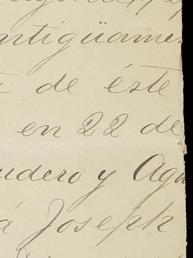 antigüamen
de éste
en 22 de
udero y Agu
á Joseph